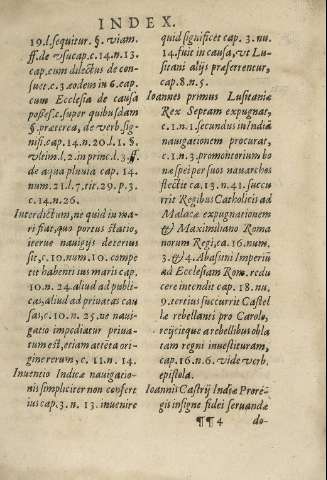 INDEX.
19. l. sequitur. §. viam.
ff. de vsucap. c. 14. n. 13.
cap. cum dilectus de con-
suet. c. 3. eodem in 6. cap.
cum Ecclesia de causa
posses. c. super quibusdam
§. præterea, de verb. sig-
nifi. cap. 14. n. 20. l. 1. §.
vltim. l. 2. in princ. l. 3. ff.
de aqua pluvia cap. 14.
num. 21. l. 7. tit. 29. p. 3.
c. 14. n. 26.
Interdictum, ne quid in ma-
ri fiat, quo portus statio,
iterue nauigijs deterius
sit, c. 10. num. 10. compe
tit habenti ius maris cap.
10. n. 24. aliud ad publi-
cas, aliud ad priuatas cau
sas, c. 10. n. 25. ne naui-
gatio impediatur priua-
tum est, etiam attēta ori-
gine rerum, c. 11. n. 14.
Inuentio Indicæ nauigatio-
nis simpliciter non confert
ius cap. 3. n. 13. inuenire
quid significet cap. 3. nu.
14. fuit in causa, vt Lu-
sitani alijs præferrentur,
cap. 8. n. 5.
Ioannes primus Lusitaniæ
Rex Septam expugnat,
c. 1. n. 1. secundus in Indiā
nauigationem procurat,
c. 1. n. 3. promontorium bo
næ spei per suos nauarchos
flectit ca. 13. n. 41. succu-
rrit Regibus Catholicis ad
Malacæ expugnationem
& Maximiliano Roma
norum Regi, ca. 16. num.
3. & 4. Abassini Imperiū
ad Ecclesiam Rom. redu
cere intendit cap. 18. nu.
9. tertius succurrit Castel
læ rebellanti pro Carolo,
reijcitque a rebellibus obla
tam regni inuestituram,
cap. 16. n. 6. vide verb.
epistola.
Ioannis Castrij Indiæ Prore-
gis insigne fidei seruandæ
¶¶ 4 do-